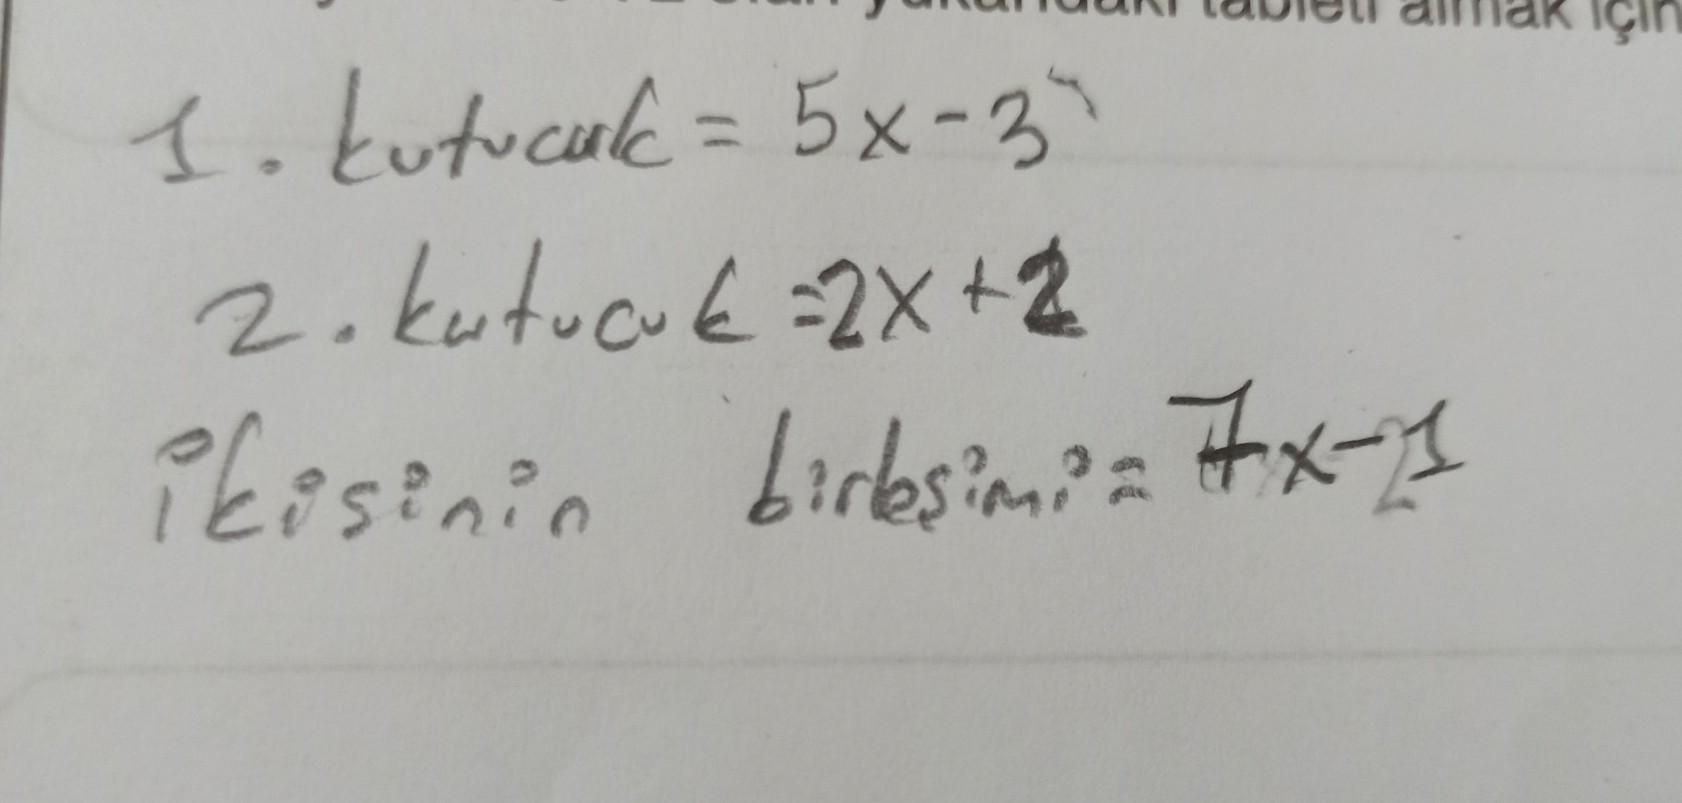 yukarıdaki tableti almak için
1. kutucuk = 5x-3
2. kutucuk =2x+2
ikisinin birleşimi= 7x-1